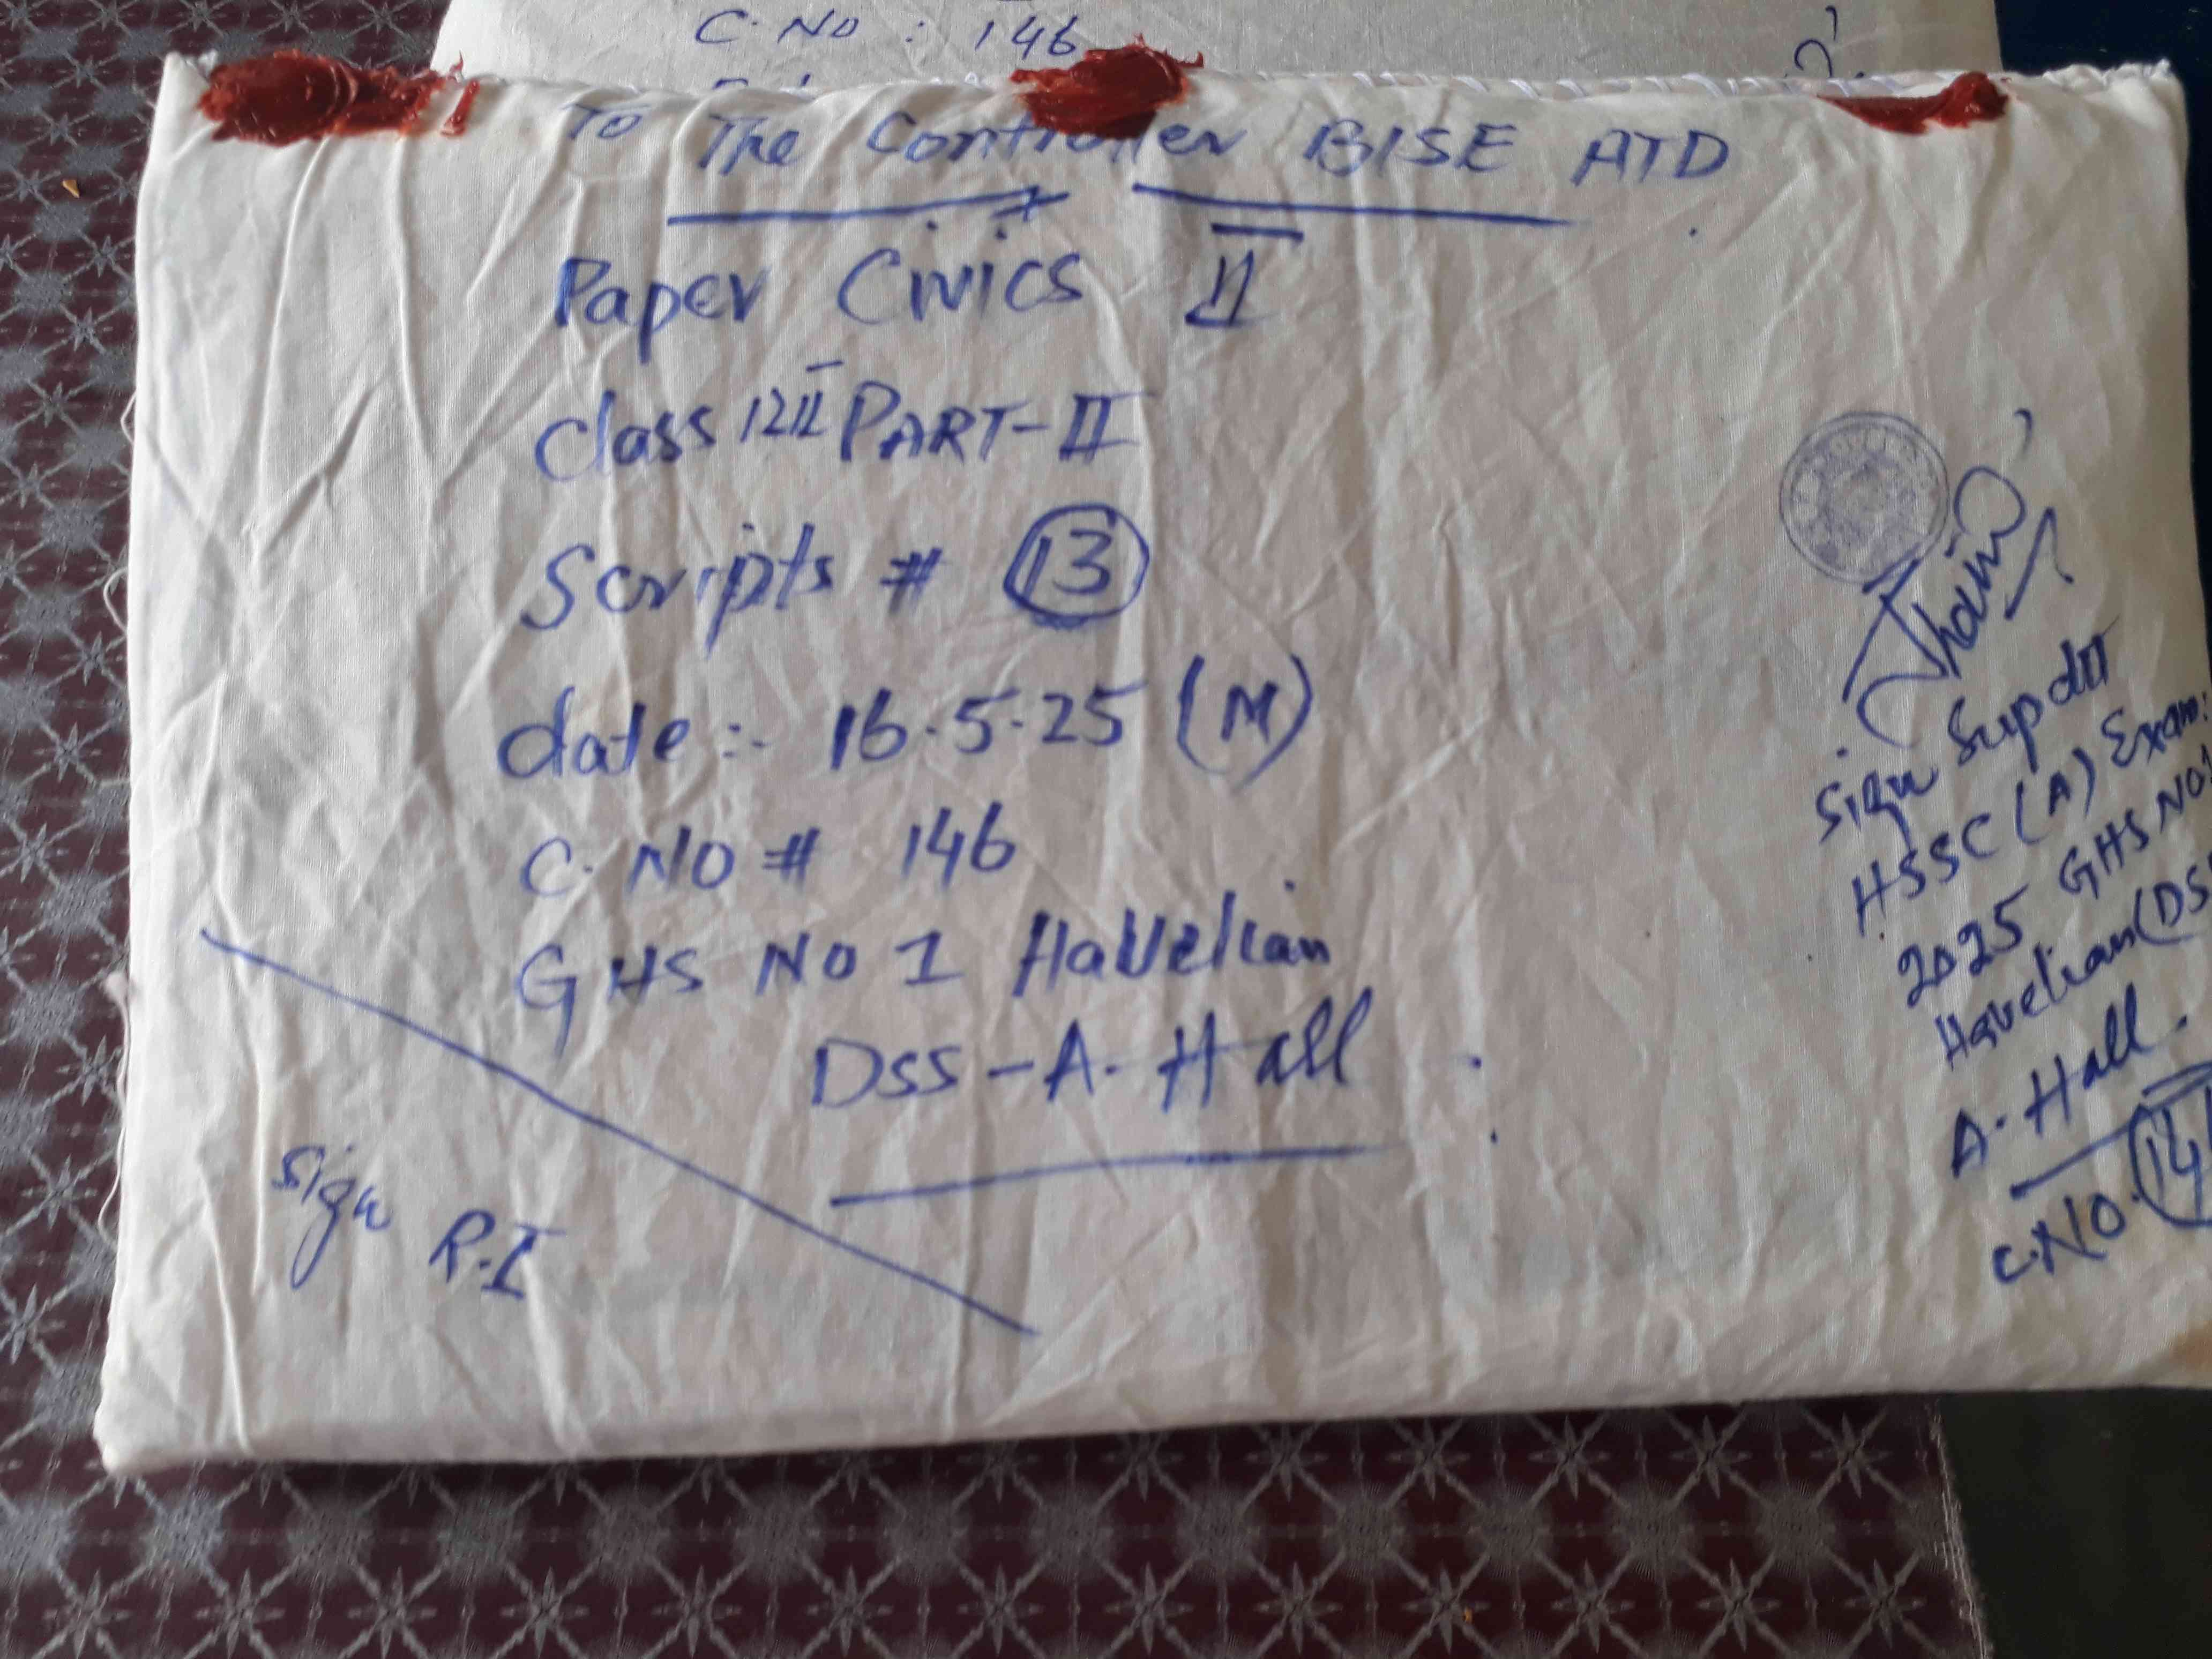 C. No : 146
To The Controller BISE ATD
Paper Civics II
Class 12th PART-II
Scripts # 13
date :- 16.5.25 (M)
C. No # 146
GHS No 1 Havelian
DSS-A-Hall
Sign R.I
Sign Supdtt
HSSC (A) Exam:
2025 GHS No1
Havelian (DS
A-Hall.
C.No. 14